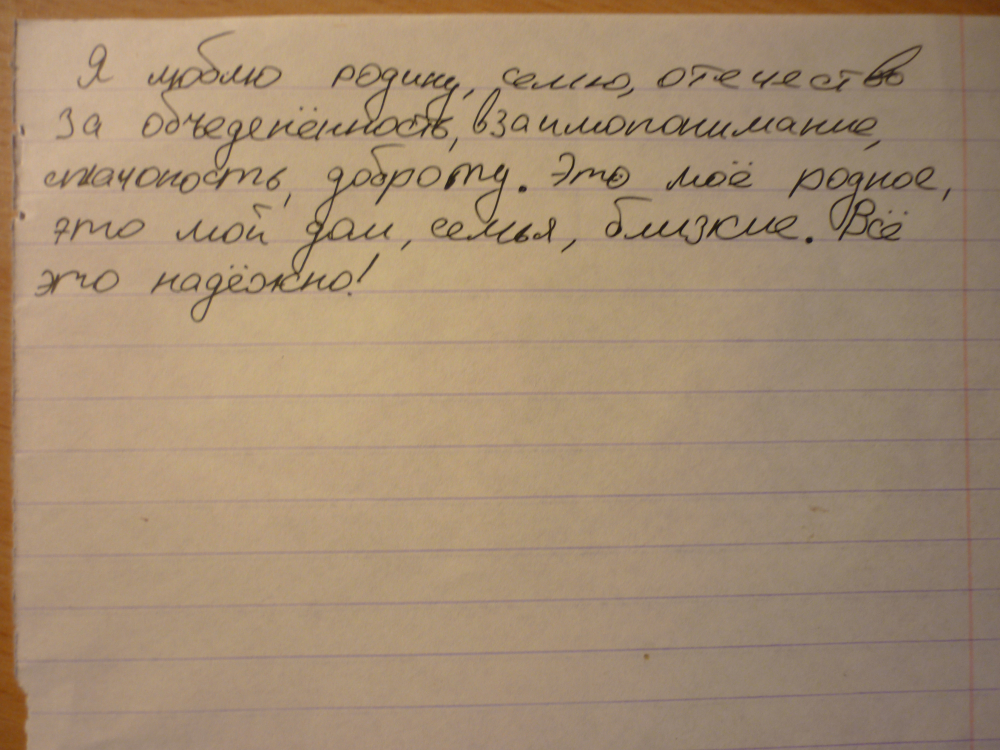 Я люблю родину, семю, отечество
за объеденённость, взаимопонимание,
сплачоность, доброту. Это моё родное,
это мой дом, семья, близкие. Всё
это надёжно!